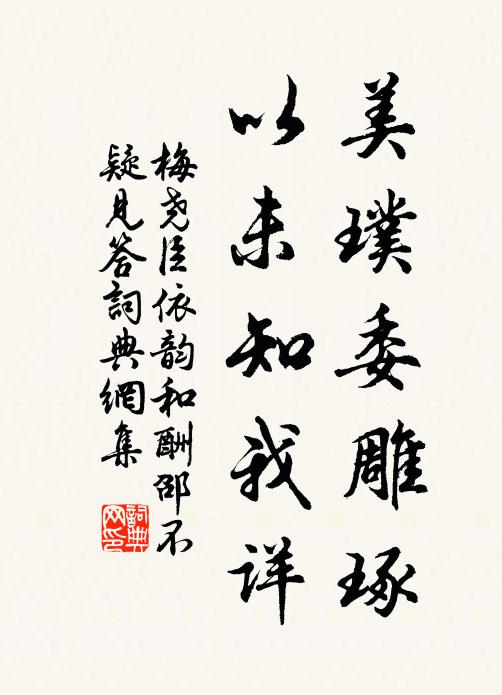 美璞委雕琢
以未知我详
梅尧臣依韵和酬邵不
疑见答詞典網集
詞典网印